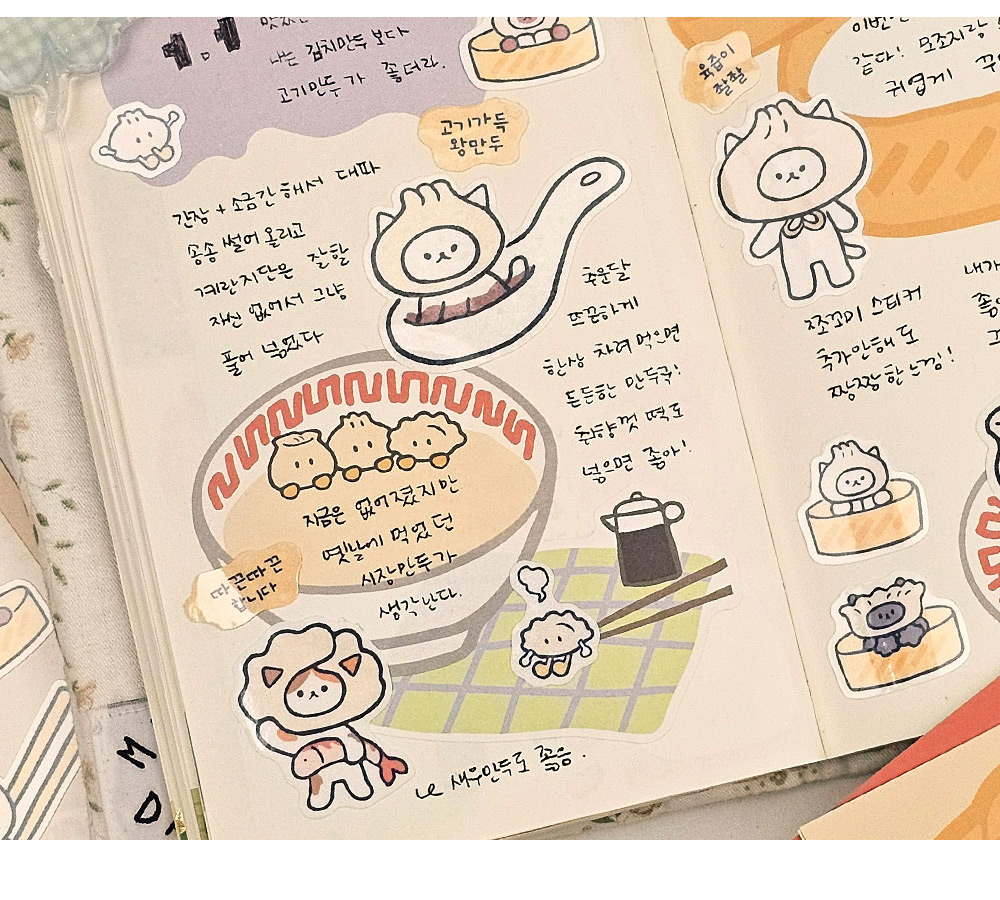 1.1
나는 김치만두 보다
고기만두가 좋더라.
고기가득
왕만두
간장 + 소금간 해서 대파
송송 썰어 올리고
계란지단은 잘할
자신 없어서 그냥
풀어 넣었다
추운날
뜨끈하게
한상 차려 먹으면
든든한 만두국!
취향껏 떡도
넣으면 좋아!
지금은 없어졌지만
옛날에 먹었던
시장만두가
생각난다.
따끈따끈
합니다
난 새우만두도 좋음.
육즙이
좔좔
이번
같다! 모조지랑
귀엽게
쪼꼬미 스티커
추가안해도
짱짱한 느낌!
내가
M
D